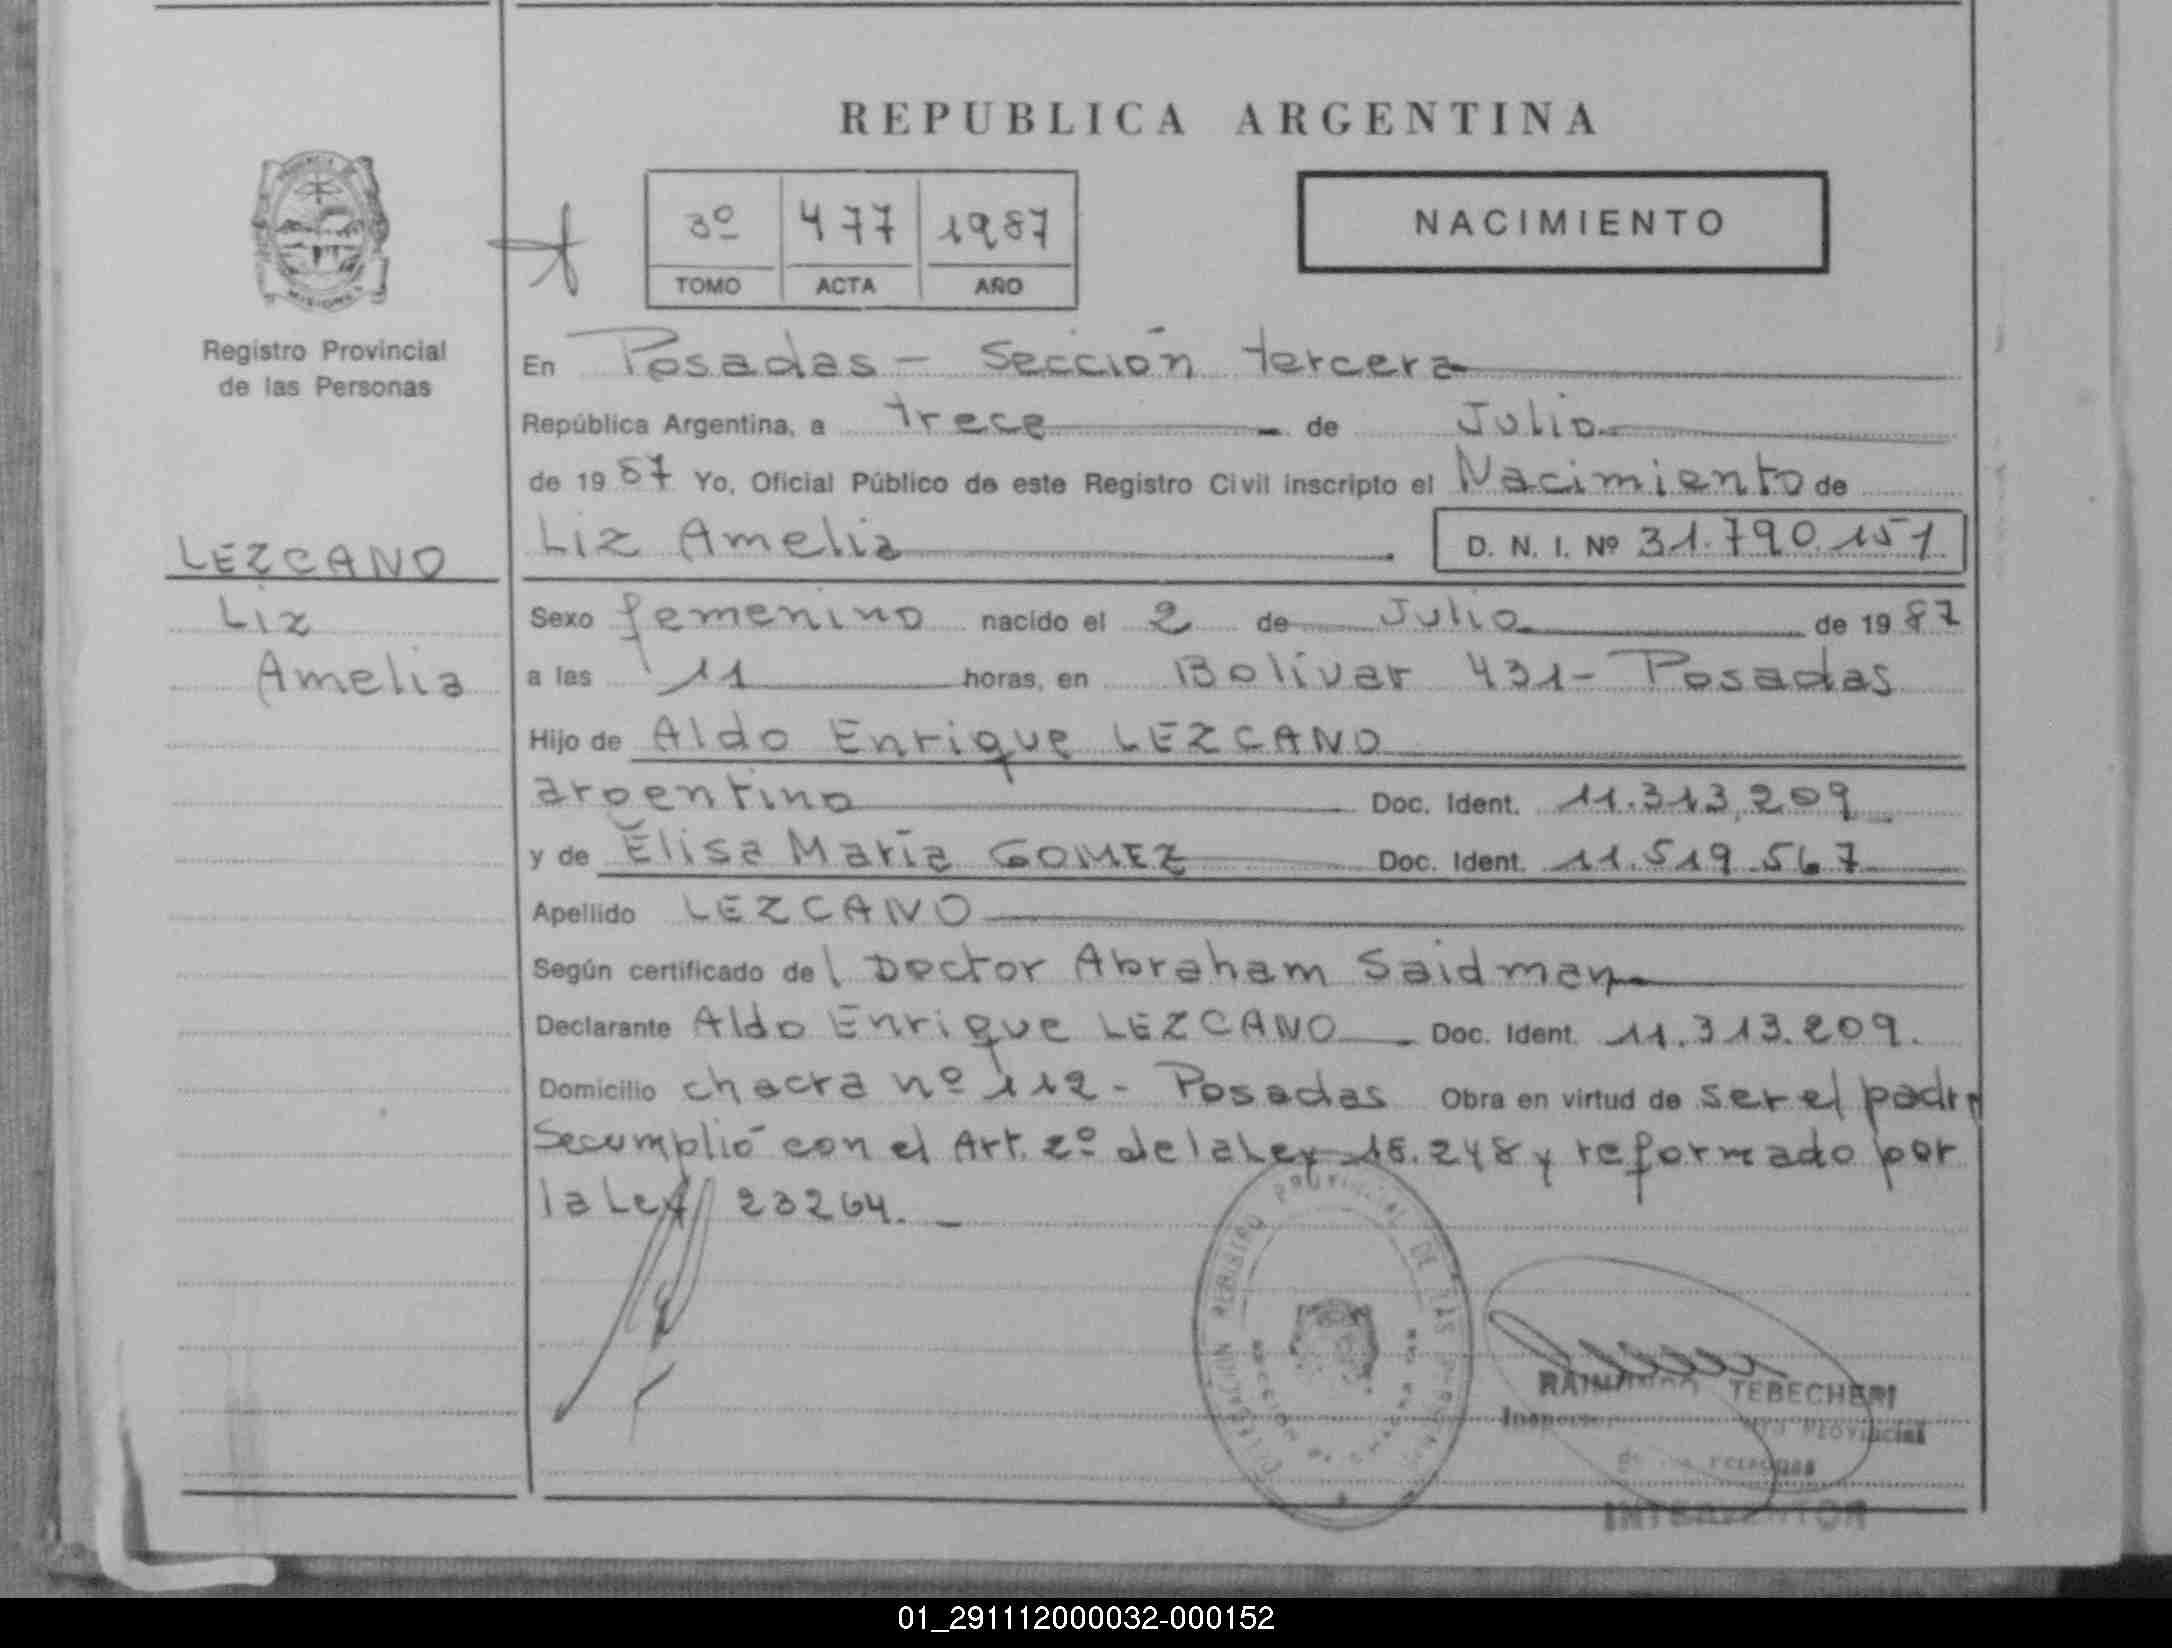 REPUBLICA ARGENTINA
3º 477 1987
TOMO ACTA AÑO
NACIMIENTO
PROVINCIA DE
MISIONES
Registro Provincial
de las Personas
LEZCANO
Liz
Amelia
En Posadas - Sección tercera
República Argentina, a trece de Julio
de 1987 Yo, Oficial Público de este Registro Civil inscripto el Nacimiento de
Liz Amelia D. N. I. Nº 31.790.151
Sexo femenino nacido el 2 de Julio de 1987
a las 11 horas, en Bolívar 431 - Posadas
Hijo de Aldo Enrique LEZCANO
argentino Doc. Ident. 11.313.209
y de Elisa María GOMEZ Doc. Ident. 11.519.567
Apellido LEZCANO
Según certificado del Doctor Abraham Saidman
Declarante Aldo Enrique LEZCANO Doc. Ident. 11.313.209.
Domicilio chacra nº 112 - Posadas Obra en virtud de ser el padre
Se cumplió con el Art. 2º de la Ley 18.248 y reformado por
la Ley 23264.
DELEGACION REGISTRO PROVINCIAL DE LAS PERSONAS
POSADAS MISIONES
TEBECHERI
Inspector Provincial
de las Personas
INTERVENTOR
01_291112000032-000152